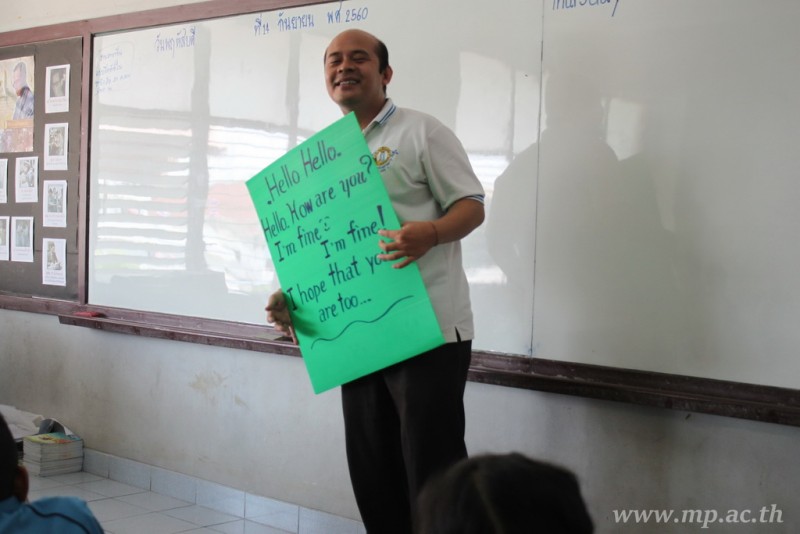 วันพฤหัสบดี ที่ ๘ กันยายน พศ 2560
Thursday
Hello Hello.
Hello. How are you?
I'm fine
I'm fine!
I hope that you
are too...
www.mp.ac.th